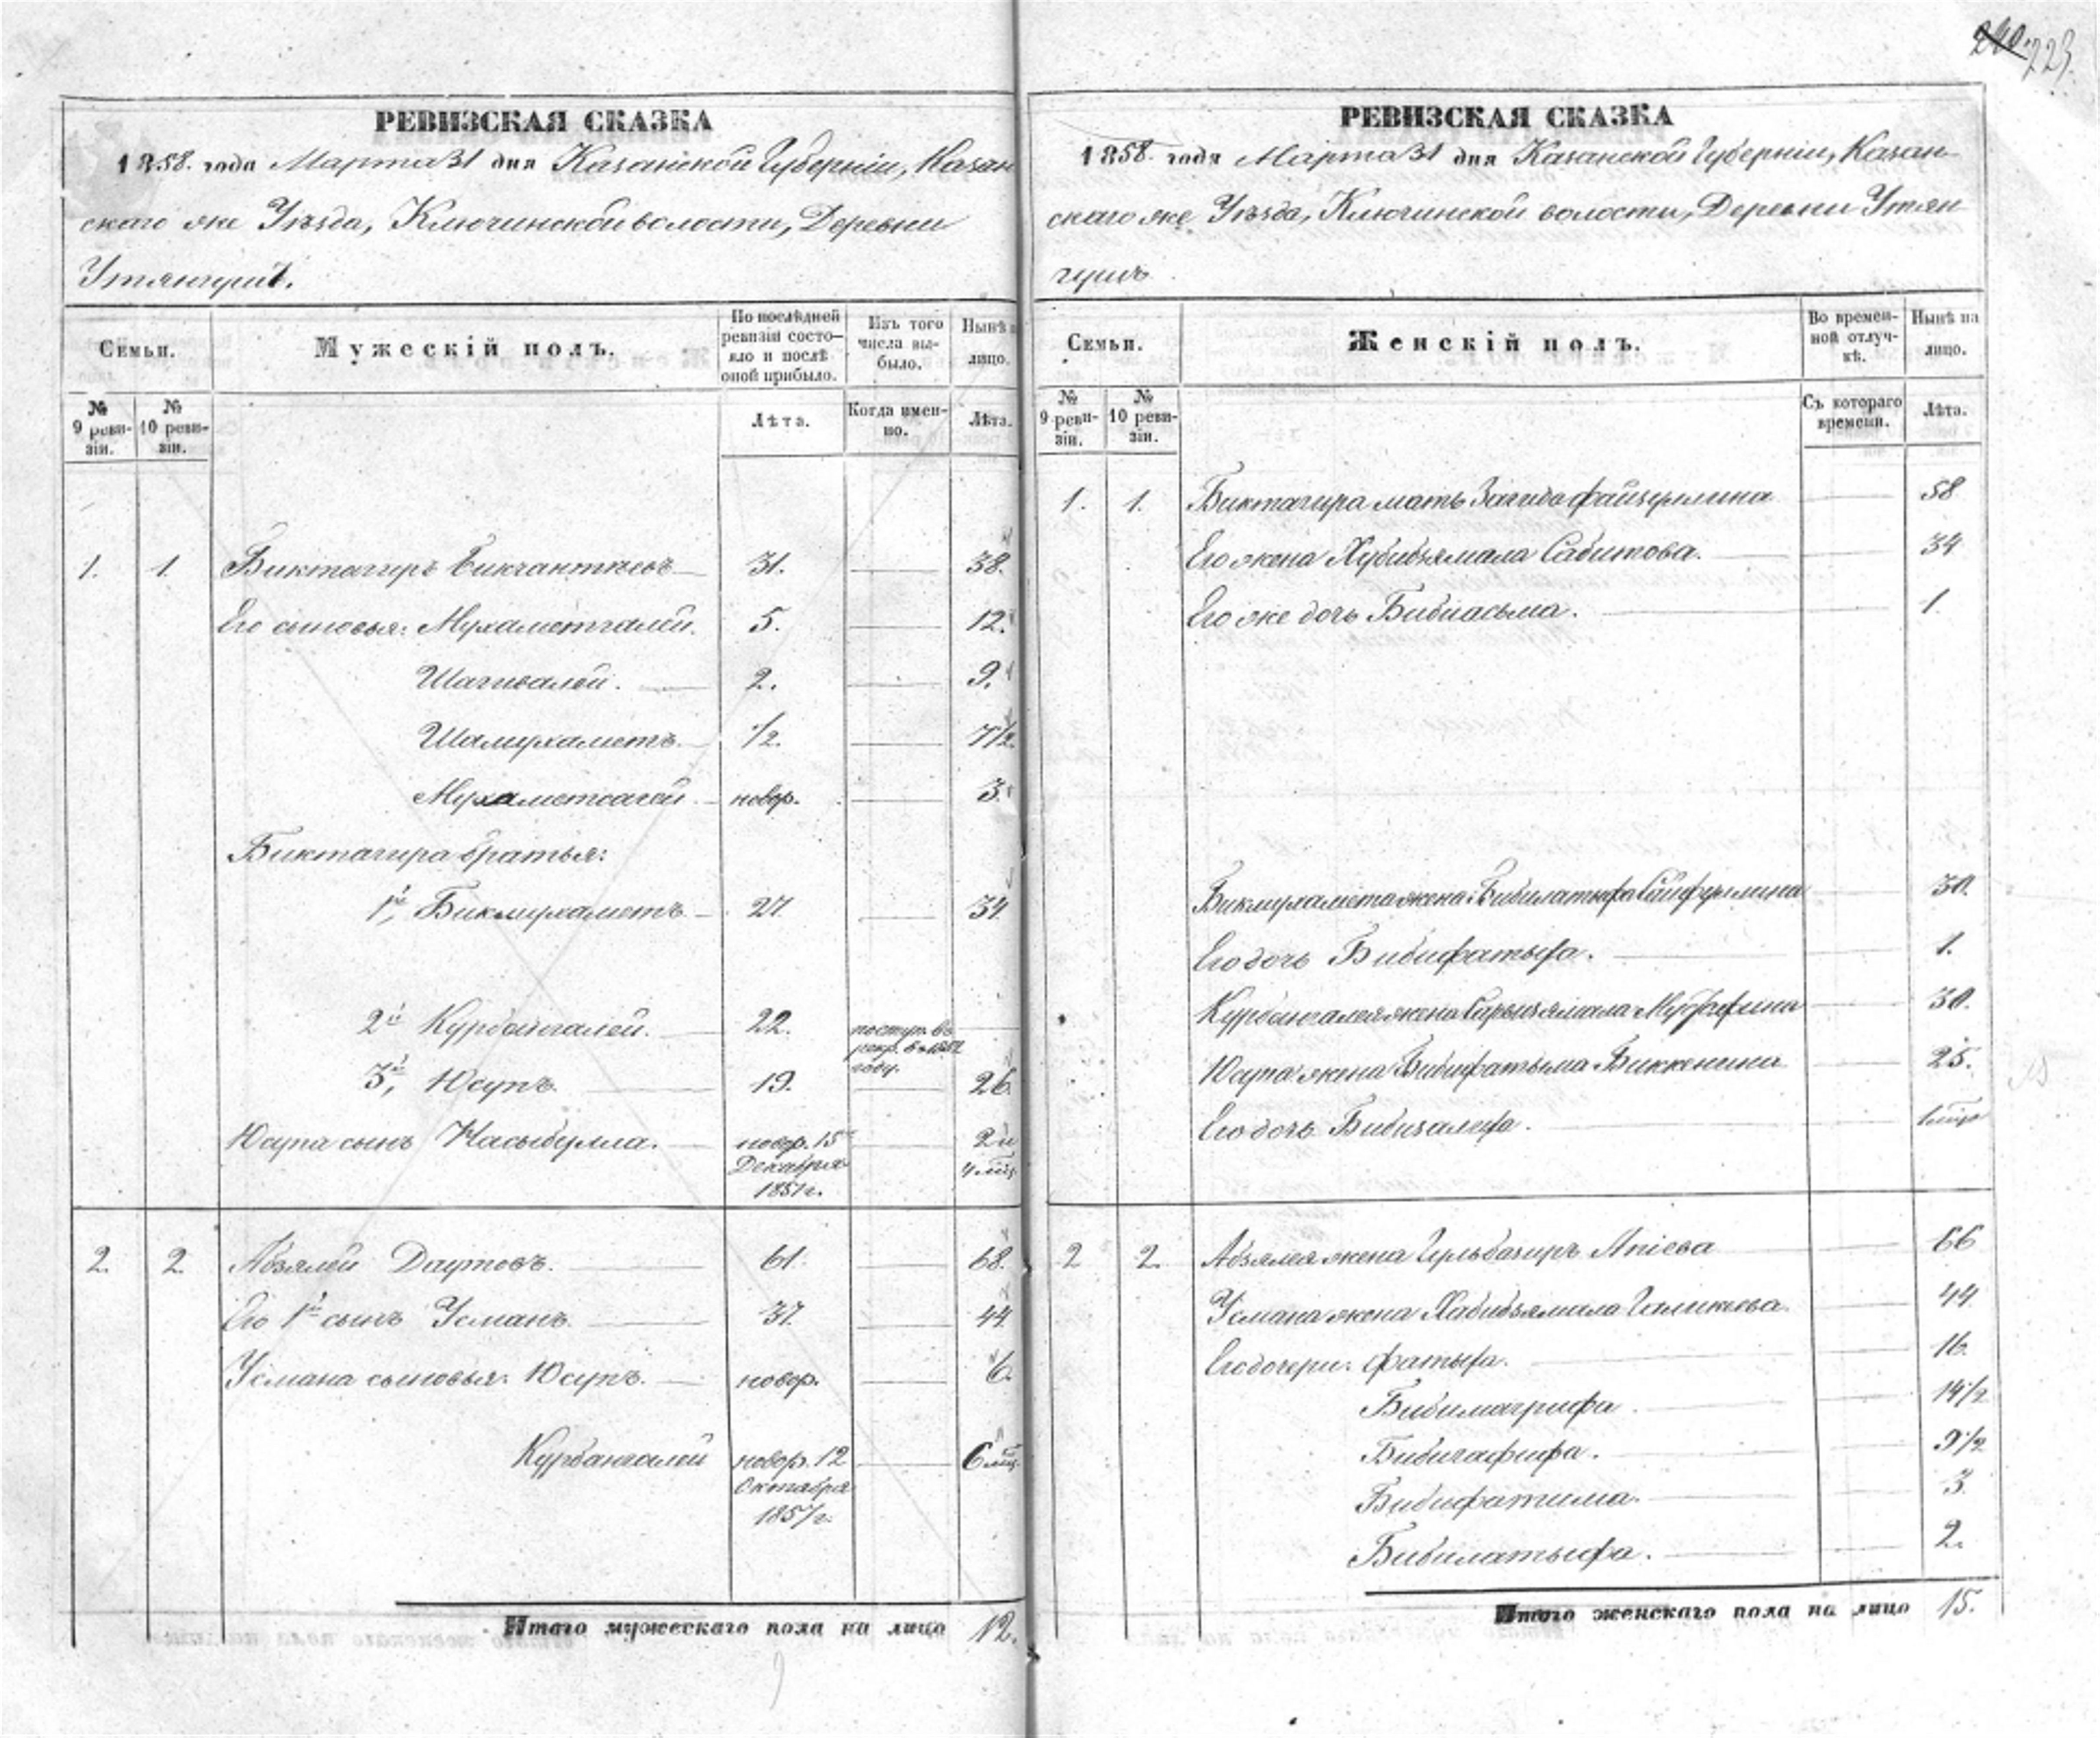 240. 223.
РЕВИЗСКАЯ СКАЗКА
1858. года Марта 31 дня Казанской Губерніи, Казан
скаго же Уѣзда, Ключинской волости, Деревни
Утянгушъ.
Семьи.
Мужескій полъ.
По послѣдней ревизіи состояло и послѣ оной прибыло.
Изъ того числа выбыло.
Нынѣ на лицо.
№ 9 ревизіи.
№ 10 ревизіи.
Лѣта.
Когда именно.
Лѣта.
1. 1. Биктагиръ Бикчантаевъ 31. 38.
Его сыновья: Мухаметгалей. 5. 12.
Шагивалей. 2. 9.
Шамухаметъ. 1/2. 7 1/2.
Мухамет новор. 3.
Биктагира братья:
1й, Бикмухаметъ 27. 34.
2й Курбангалей. 22. поступ. въ рекр. въ 1852 году.
3й, Юсупъ. 19. 26.
Юсупа сынъ Насыбулла. новор. 15 Декабря 1857 г. 2 и 4 мѣс.
2. 2. Абзялей Даутовъ. 61. 68.
Его 1й сынъ Усманъ. 37. 44.
Усмана сыновья: Юсупъ. новор. 6.
Курбангалей новор. 12 Октября 1857 г. 6 мѣс.
Итого мужескаго пола на лицо 12.
РЕВИЗСКАЯ СКАЗКА
1858. года Марта 31 дня Казанской Губерніи, Казан-
скаго же Уѣзда, Ключинской волости, Деревни Утян
гушъ
Семьи.
Женскій полъ.
Во временной отлучкѣ.
Нынѣ на лицо.
№ 9 ревизіи.
№ 10 ревизіи.
Съ котораго времени.
Лѣта.
1. 1. Биктагира мать Загида Файзуллина 58
Его жена Хубибзямала Сабитова. 34
Его же дочь Бибиасьма. 1.
Бикмухамета жена: Бибилатыфа Сайфуллина 30.
Его дочь Бибифатыфа. 1.
Курбангалея жена 30.
Юсупа жена Бибифатыма Биккенина 25.
Его дочь Бибигалифа. 1 мѣс
2 2. Абзялея жена Гульбагиръ Апіева 66
Усмана жена Хабибзямала Галикеева. 44
Его дочери: Фатыфа. 16.
Бибимагрифа. 14 1/2
Бибигафифа. 9 1/2
Бибифатима. 3.
Бибилатыфа. 2.
Итого женскаго пола на лицо 15.